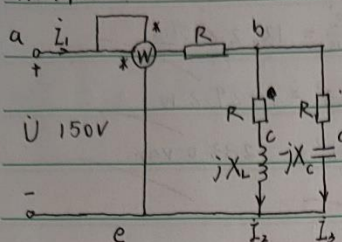 a İ₁ * R b
+ * W
R R
U̇ 150V c
jX_L -jX_c
-
e İ₂ İ₃